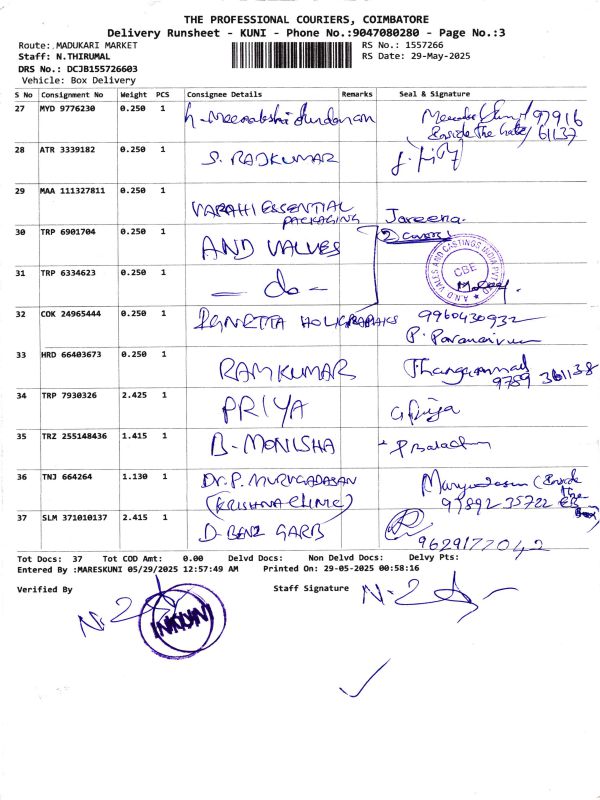 THE PROFESSIONAL COURIERS, COIMBATORE
Delivery Runsheet - KUNI - Phone No.:9047080280 - Page No.:3
Route:.MADUKARI MARKET RS No.: 1557266
Staff: N.THIRUMAL RS Date: 29-May-2025
DRS No.: DCJB155726603
Vehicle: Box Delivery
S No Consignment No Weight PCS Consignee Details Remarks Seal & Signature
27 MYD 9776230 0.250 1 97916
61137
28 ATR 3339182 0.250 1 S. RAJKUMAR
29 MAA 111327811 0.250 1 VARAHI ESSENTIAL
PACKAGING Jareena.
30 TRP 6901704 0.250 1 AND VALVES
CBE
31 TRP 6334623 0.250 1 — do —
32 COK 24965444 0.250 1 9960430932
33 HRD 66403673 0.250 1 RAMKUMAR Thangammal
9789 361138
34 TRP 7930326 2.425 1 PRIYA
35 TRZ 255148436 1.415 1 B-MONISHA
36 TNJ 664264 1.130 1 Dr. P. MURUGADASAN
(KRISHNA CLINIC) 97892 35722
37 SLM 371010137 2.415 1 D-BENZ GARB
9629177042
Tot Docs: 37 Tot COD Amt: 0.00 Delvd Docs: Non Delvd Docs: Delvy Pts:
Entered By :MARESKUNI 05/29/2025 12:57:49 AM Printed On: 29-05-2025 00:58:16
Verified By Staff Signature